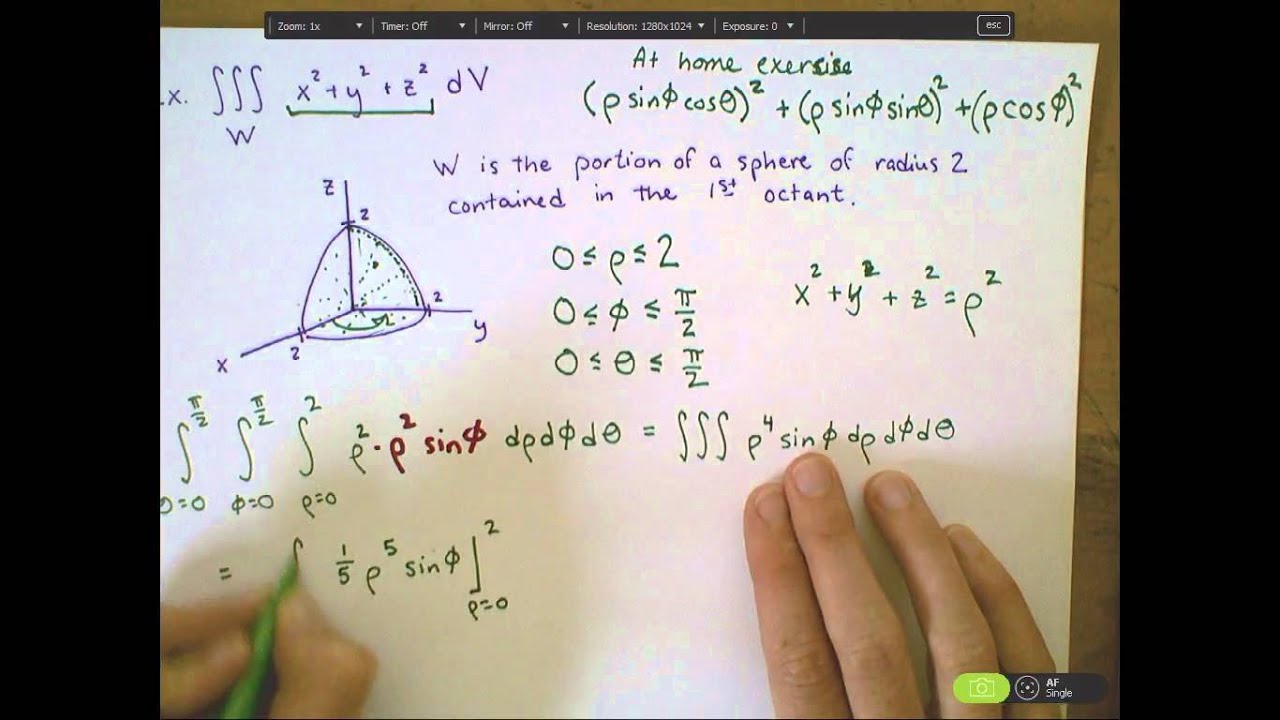 Zoom: 1x Timer: Off Mirror: Off Resolution: 1280x1024 Exposure: 0 esc
At home exercise
x. ∭ x² + y² + z² dV
W
(ρ sinϕ cosθ)² + (ρ sinϕ sinθ)² + (ρ cosϕ)²
W is the portion of a sphere of radius 2
contained in the 1st octant.
z
2
2
y
2
x
0 ≤ ρ ≤ 2
0 ≤ ϕ ≤ π/2
0 ≤ θ ≤ π/2
x² + y² + z² = ρ²
π/2 π/2 2
∫ ∫ ∫ ρ² · ρ² sinϕ dρ dϕ dθ = ∭ ρ⁴ sinϕ dρ dϕ dθ
θ=0 ϕ=0 ρ=0
= ∫ 1/5 ρ⁵ sinϕ ]²
ρ=0
AF
Single